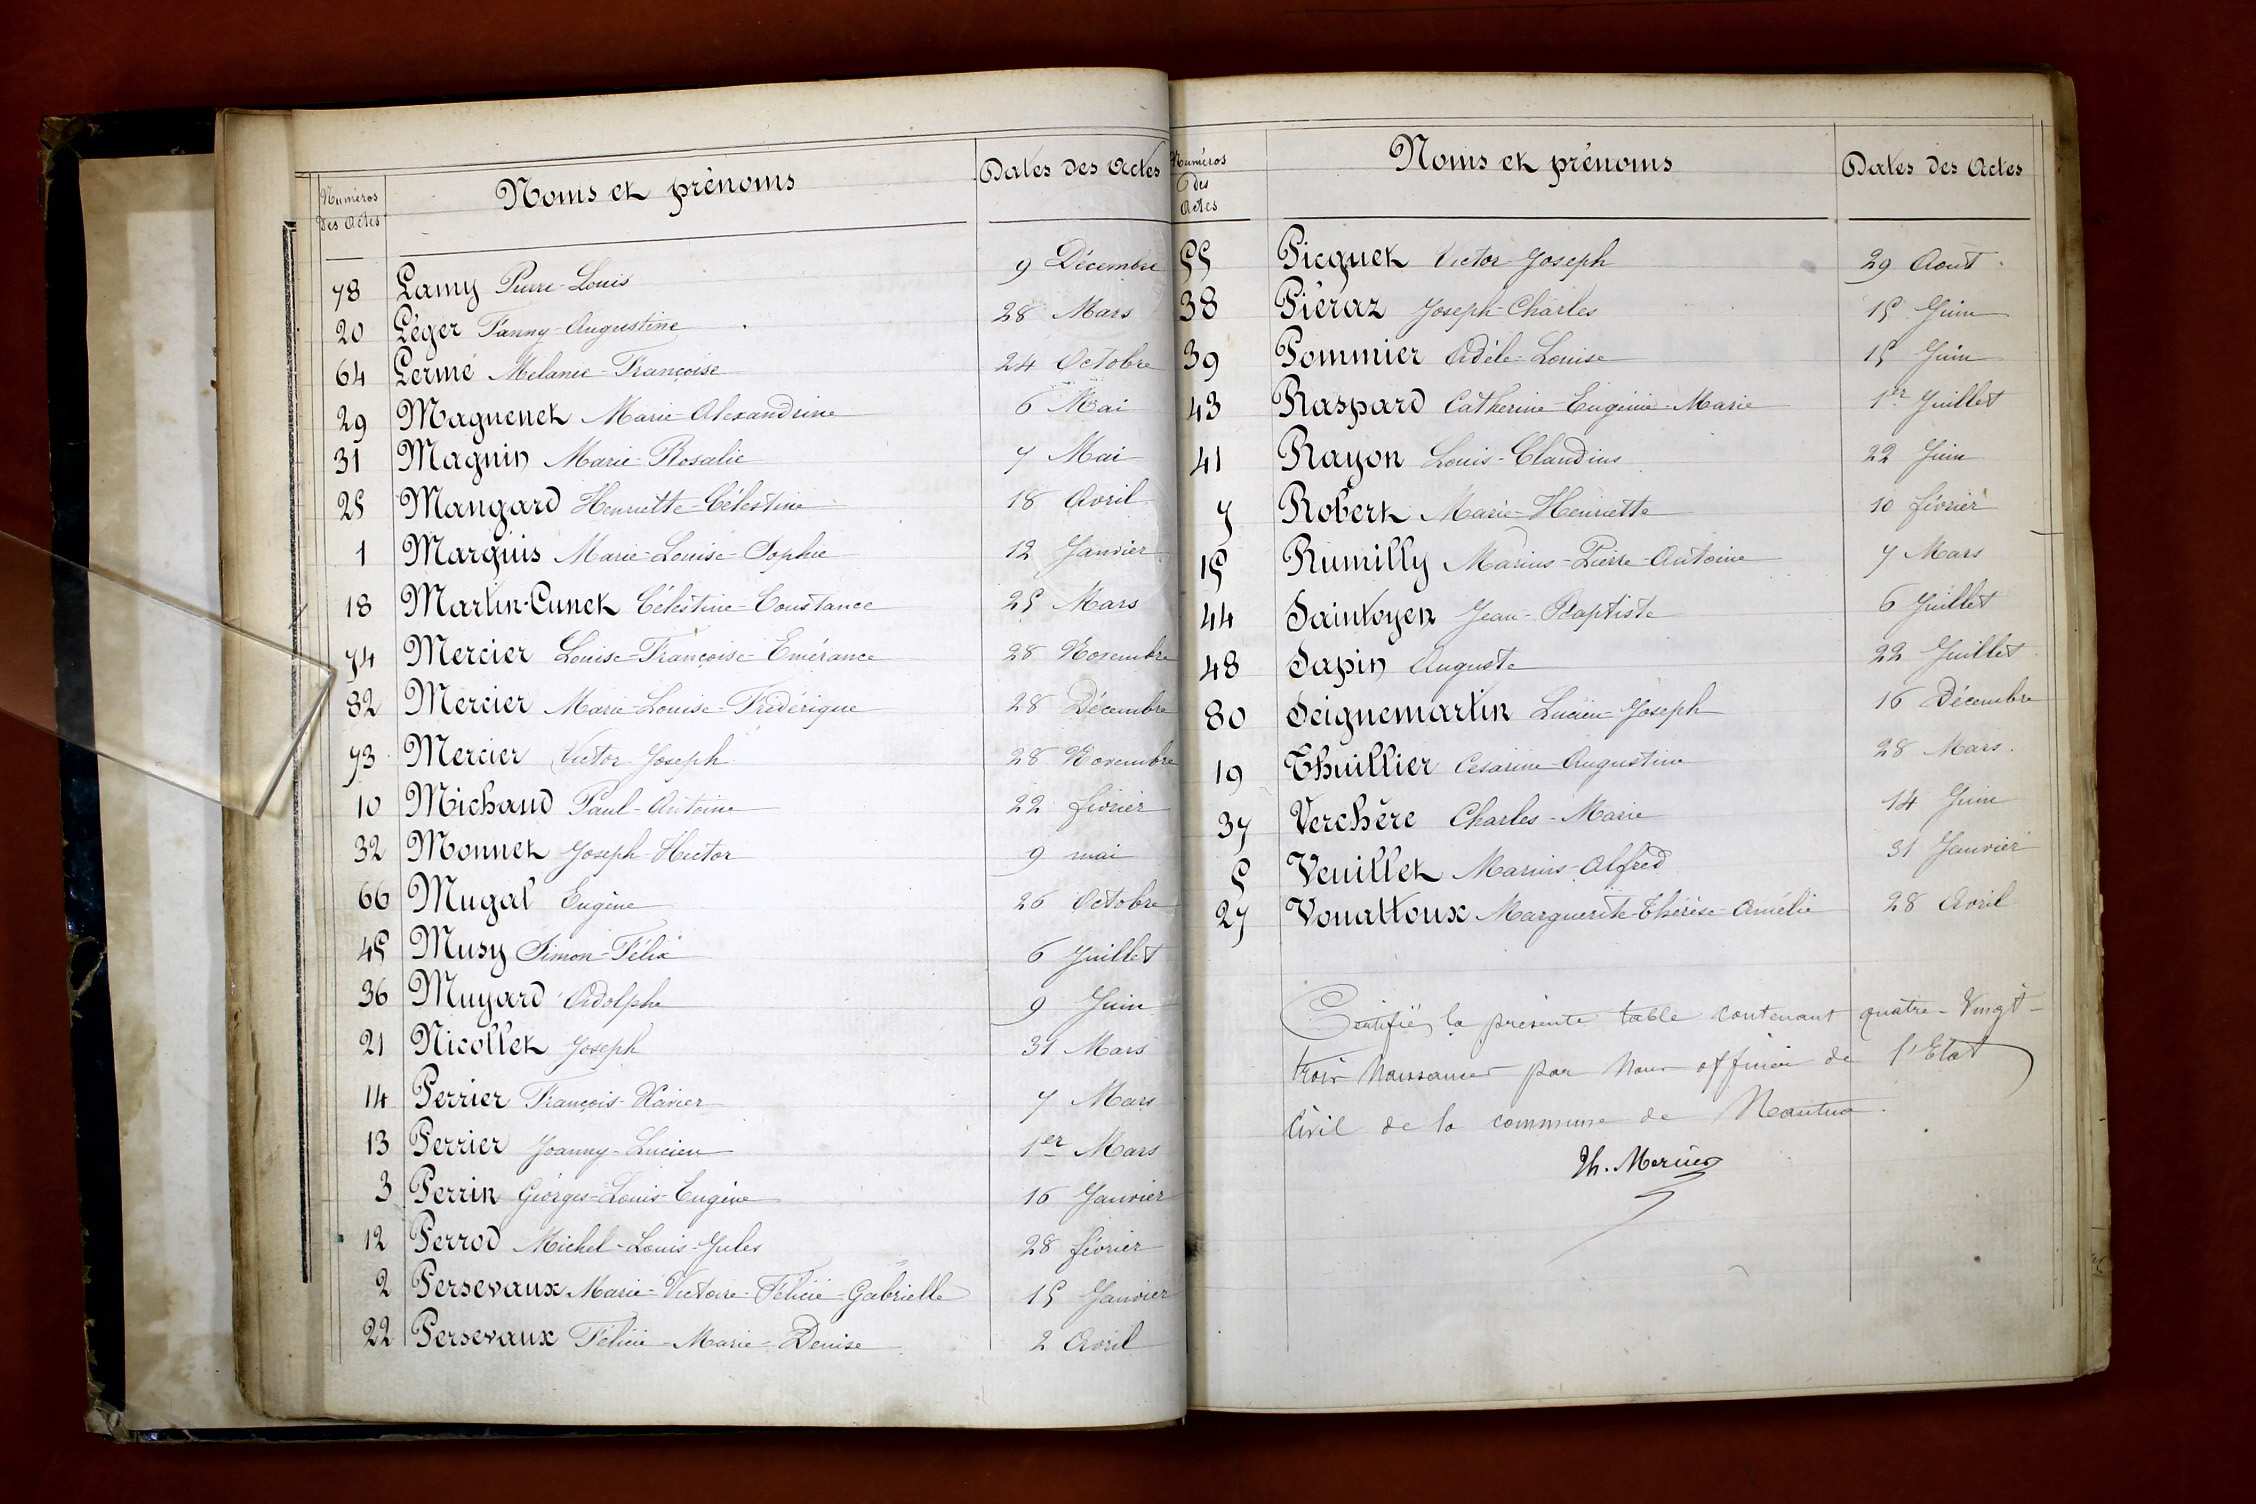 Numéros des Actes Noms et prénoms Dates des Actes
78 Lamy Pierre-Louis 9 Décembre
20 Léger Fanny-Augustine 28 Mars
64 Lermé Mélanie-Françoise 24 Octobre
29 Maguenet Marie-Alexandrine 6 Mai
31 Magnin Marie-Rosalie 7 Mai
25 Mangard Henriette-Célestine 18 Avril
1 Marquis Marie-Louise-Sophie 12 Janvier
18 Martin-Cunet Célestine-Constance 25 Mars
74 Mercier Louise-Françoise-Emérance 28 Novembre
82 Mercier Marie-Louise-Frédérique 28 Décembre
73 Mercier Victor-Joseph 28 Novembre
10 Michaud Paul-Antoine 22 février
32 Monnet Joseph-Hector 9 mai
66 Mugat Eugène 26 Octobre
45 Musy Simon-Félix 6 Juillet
36 Muyard Adolphe 9 Juin
21 Nicollet Joseph 31 Mars
14 Perrier François-Xavier 7 Mars
13 Perrier Joanny-Lucien 1er Mars
3 Perrin Géorges-Louis-Eugène 16 Janvier
12 Perrod Michel-Louis-Jules 28 février
2 Persevaux Marie-Victoire-Félicie-Gabrielle 15 Janvier
22 Persevaux Félicie-Marie-Denise 2 Avril
Numéros des Actes Noms et prénoms Dates des Actes
55 Picquet Victor-Joseph 29 Août
38 Piéraz Joseph-Charles 15 Juin
39 Pommier Adèle-Louise 15 Juin
43 Raspard Catherine-Eugénie-Marie 1er Juillet
41 Rayon Louis-Claudius 22 Juin
7 Robert Marie-Henriette 10 février
15 Rumilly Marius-Pierre-Antoine 7 Mars
44 Saintoyen Jean-Baptiste 6 Juillet
48 Sapin Auguste 22 Juillet
80 Seignemartin Lucien-Joseph 16 Décembre
19 Thuillier Césarine-Augustine 28 Mars
37 Verchère Charles-Marie 14 Juin
5 Veuillet Marius-Alfred 31 Janvier
27 Vouattoux Marguerite-Thérèse-Amélie 28 Avril
Certifié, la présente table contenant quatre-Vingt-
trois Naissances par Nous officier de l'Etat
Civil de la commune de Nantua.
Th. Mercier